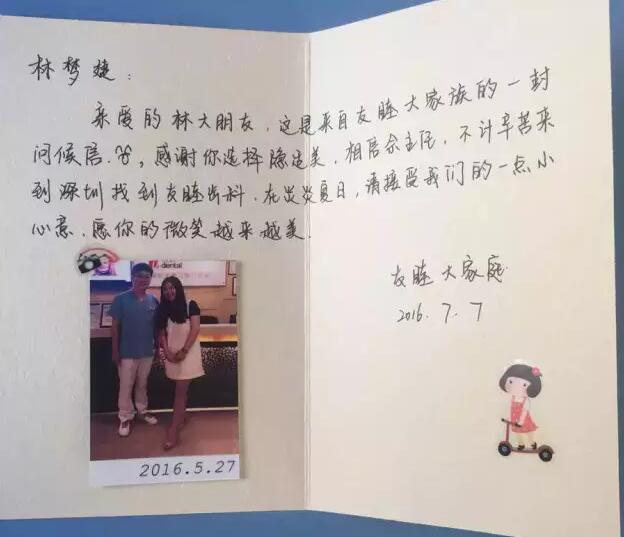 林梦婕：
亲爱的林大朋友，这是来自友睦大家族的一封
问候信。感谢你选择隐适美，相信余主任，不计辛苦来
到深圳找到友睦齿科，在炎炎夏日，请接受我们的一点小
心意，愿你的微笑越来越美。
友睦大家庭
2016.7.7
dental
2016.5.27